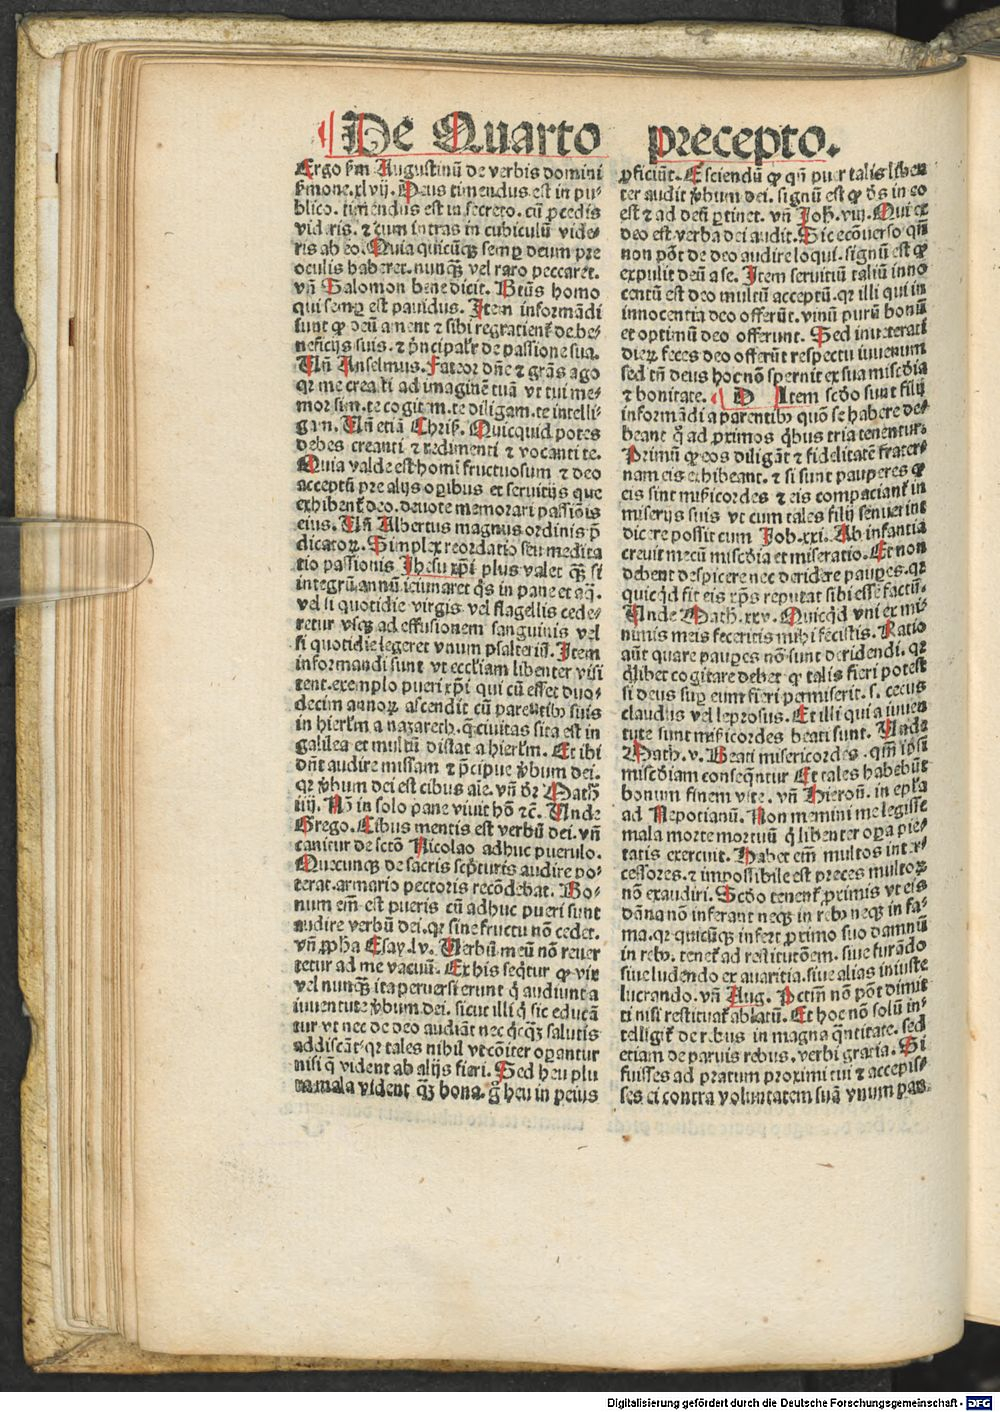 De Quarto precepto.
Ergo ẜm Augustinū de verbis domini
ẜmone.xlvij. Deus timendus est in pu⸗
blico. timendus est in secreto. cū ꝓcedis
videris. ⁊ cum intras in cubiculū vide⸗
ris ab eo. Quia quicūqꝫ semꝑ deum pre
oculis haberet. nunqꝫ vel raro peccaret.
vn̄ Salomon benedicit. Btūs homo
qui semꝑ est pauidus. Item informādi
sunt ꝙ deū ament ⁊ sibi regratient᷑ de be⸗
neficijs suis. ⁊ pͥncipalr̄ de passione sua.
Un̄ Anselmus. Fateor dn̄e ⁊ gr̄as ago
qꝛ me creasti ad imaginē tuā vt tui me⸗
mor sim. te cogitem. te diligam. te intelli⸗
gam. Un̄ etiā Chris̄. Quicquid potes
debes creanti ⁊ redimenti ⁊ vocanti te.
Quia valde est homī fructuosum ⁊ deo
acceptū pre alijs oꝑibus et seruitijs que
exhibent᷑ deo. deuote memorari passiōis
eius. Un̄ Albertus magnus ordinis p̄
dicatoꝝ. Simplex reordatio seu medita
tio passionis Jhesu xp̄i plus valet qꝫ si
integrū annū ieiunaret qͥs in pane et aq̄.
vel si quotidie virgis vel flagellis cede⸗
retur vsqꝫ ad effusionem sanguinis vel
si quotidie legeret vnum psalteriū. Item
informandi sunt vt eccl̄iam libenter visi
tent. exemplo pueri xp̄i qui cū esset duo⸗
decim annoꝝ ascendit cū parentibꝰ suis
in hierl̄m a nazareth. q̄ ciuitas sita est in
galilea et multū distat a hierl̄m. Et ibi
dn̄t audire missam ⁊ p̄cipue v̄bum dei.
qꝛ v̄bum dei est cibus aīe. vn̄ dr̄ Math̄
iiij. Nō in solo pane viuit hō ⁊c̄. Unde
Grego. Cibus mentis est verbū dei. vn̄
canitur de scto᷒ Nicolao adhuc puerulo.
Quecunqꝫ de sacris scͥpturis audire po⸗
terat. armario pectoris recōdebat. Bo⸗
num em̄ est pueris cū adhuc pueri sunt
audire verbū dei. qꝛ sine fructu nō cedet.
vn̄ ꝓpha Esay.lv. Verbū meū nō reuer
tetur ad me vacuū. Ex his seqͥtur ꝙ vix
vel nunqꝫ ita peruersi erunt qͥ audiunt a
iuuentute v̄bum dei. sicut illi qͥ sic educā
tur vt nec de deo audiāt nec qͥcqꝫ salutis
addiscāt. qꝛ tales nihil vt cōiter oꝑantur
nisi q̄ vident ab alijs fieri. Sed heu plu
ra mala vident qꝫ bona. g̊ heu in peius
ꝓficiūt. Esciendū ꝙ qn̄ puer talis liben
ter audit v̄bum dei. signū est ꝙ dn̄s in eo
est ⁊ ad deū ꝑtinet. vn̄ Joh̄. viij. Qui ex
deo est verba dei audit. Sic ecōuerso qn̄
non pōt de deo audire loqui. signū est ꝙ
expulit deū a se. Item seruitiū taliū inno
centū est deo multū acceptū. qꝛ illi qui in
innocentia deo offerūt. vinū purū bonū
et optimū deo offerunt. Sed inueterati
dieꝝ feces deo offerūt respectu iuuenum
sed tn̄ deus hoc nō spernit ex sua mīscdia
⁊ bonitate. D Item scdo sunt filij
informādi a parentibꝰ quō se habere de⸗
beant qͣ̄ ad proximos qͥbus tria tenentur.
Primū ꝙ eos diligāt ⁊ fidelitatē frater⸗
nam eis exhibeant. ⁊ si sunt pauperes ꝙ
eis sint miẜicordes ⁊ eis compaciant᷑ in
miserijs suis vt cum tales filij senuerint
dicere possit cum Job.xxi. Ab infantia
creuit mecū misedia et miseratio. Et non
debent despicere nec deridere pauꝑes. qꝛ
quicqͥd fit eis xp̄s reputat sibi esse factū.
Unde Math̄.xxv. Quicqͥd vni ex mi⸗
nimis meis feceritis mihi fecistis. Ratio
aūt quare pauꝑes nō sunt deridendi. qꝛ
qͥlibet cogitare debet ꝙ talis fieri potest
si deus suꝑ eum fieri permiserit. s. cecus
claudus vel leprosus. Et illi qui a iuuen
tute sunt miẜicordes beati sunt. Unde
Math. v. Beati misericordes. qm̄ ipsi
misedīam conseqͣntur Et tales habebūt
bonum finem vite. vn̄ Hieron̄. in epl̄a
ad Nepotianū. Non memini me legisse
mala morte mortuū qͥ libenter oꝑa pie⸗
tatis exercuit. Habet em̄ multos inter⸗
cessores. ⁊ impossibile est preces multoꝝ
nō exaudiri. Scdo tenent᷑ ꝓximis vt eis
dāna nō inferant neqꝫ in rebꝰ neqꝫ in fa⸗
ma. qꝛ quicūqꝫ infert ꝓximo suo damnū
in rebꝰ. tenet᷑ ad restitutōem. siue furādo
siue ludendo ex auaritia. siue alias iniuste
lucrando. vn̄ Aug. Pctm̄ nō pōt dimit
ti nisi restituat᷑ ablatū. Et hoc nō solū in⸗
telligit᷑ de rebus in magna qͣntitate. sed
etiam de paruis rebus. verbi gratia. Si
fuisses ad pratum proximi tui ⁊ accepis⸗
ses ei contra voluntatem suā vnum par⸗
Digitalisierung gefördert durch die Deutsche Forschungsgemeinschaft - DFG